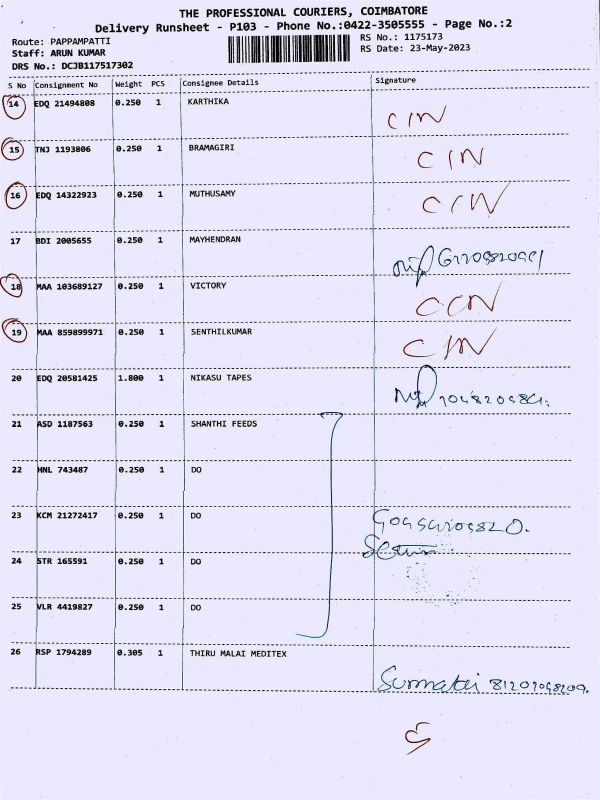 THE PROFESSIONAL COURIERS, COIMBATORE
Delivery Runsheet - P103 - Phone No.:0422-3505555 - Page No.:2
Route: PAPPAMPATTI RS No.: 1175173
Staff: ARUN KUMAR RS Date: 23-May-2023
DRS No.: DCJB117517302
S No Consignment No Weight PCS Consignee Details Signature
14 EDQ 21494808 0.250 1 KARTHIKA
15 TNJ 1193806 0.250 1 BRAMAGIRI
16 EDQ 14322923 0.250 1 MUTHUSAMY
17 BDI 2005655 0.250 1 MAYHENDRAN
18 MAA 103689127 0.250 1 VICTORY
19 MAA 859899971 0.250 1 SENTHILKUMAR
20 EDQ 20581425 1.800 1 NIKASU TAPES
21 ASD 1187563 0.250 1 SHANTHI FEEDS
22 HNL 743487 0.250 1 DO
23 KCM 21272417 0.250 1 DO
24 STR 165591 0.250 1 DO
25 VLR 4419827 0.250 1 DO
26 RSP 1794289 0.305 1 THIRU MALAI MEDITEX